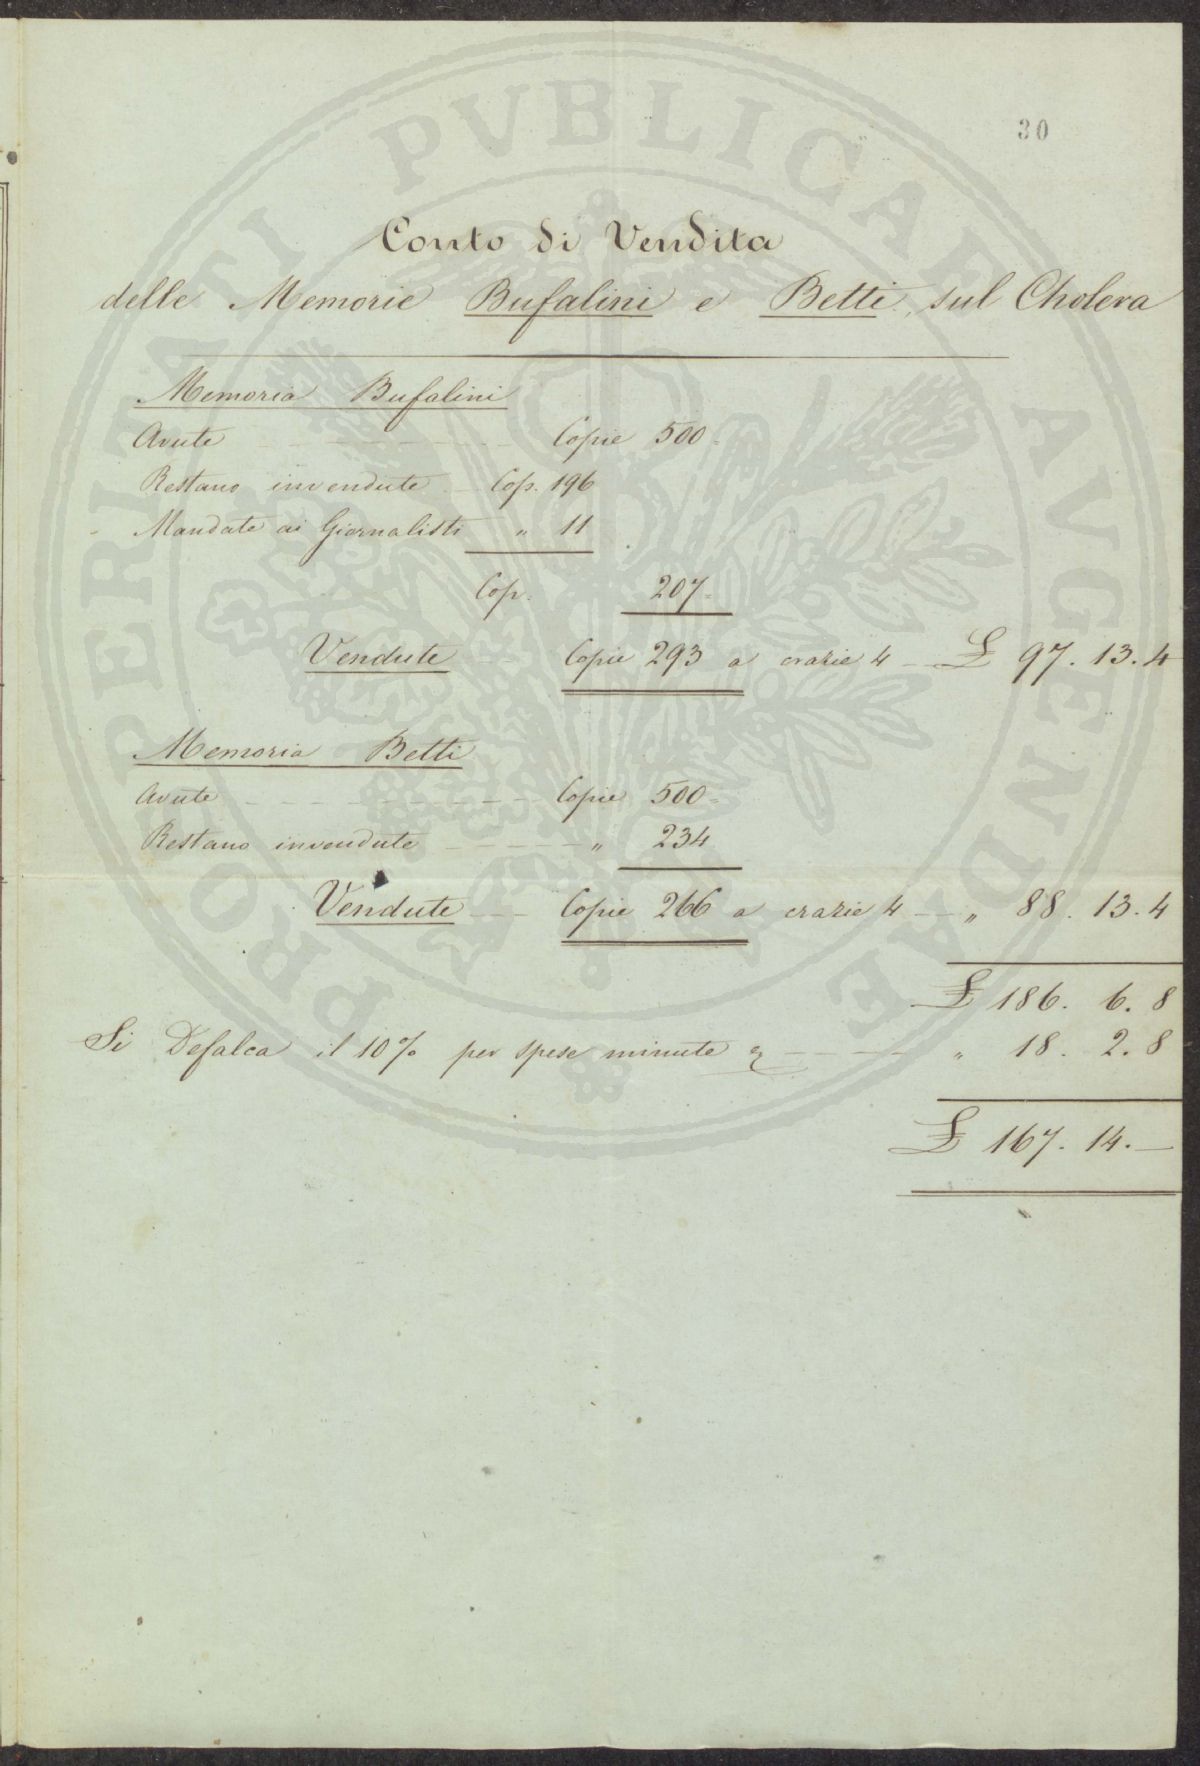 30
Conto di Vendita
delle Memorie Bufalini e Betti, sul Cholera
Memoria Bufalini
Avute Copie 500
Restano invendute Cop. 196
Mandate ai Giornalisti " 11
Cop. 207
Vendute Copie 293 a crazie 4 £ 97. 13. 4
Memoria Betti
Avute Copie 500
Restano invendute " 234
Vendute Copie 266 a crazie 4 " 88. 13. 4
£ 186. 6. 8
Si Defalca il 10% per spese minute " 18. 2. 8
£ 167. 14. —
PROSPERITATI PVBLICAE AVGENDAE